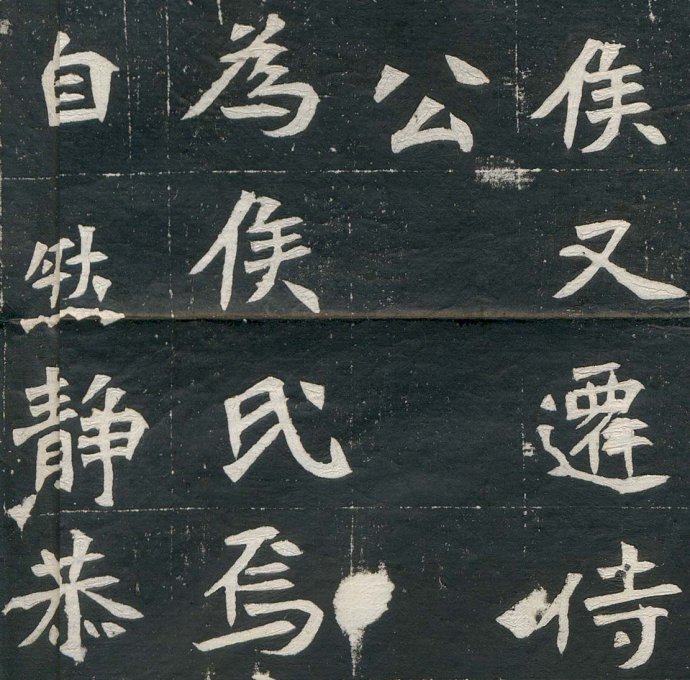 侯又遷侍
公
為侯氏焉
自然靜恭